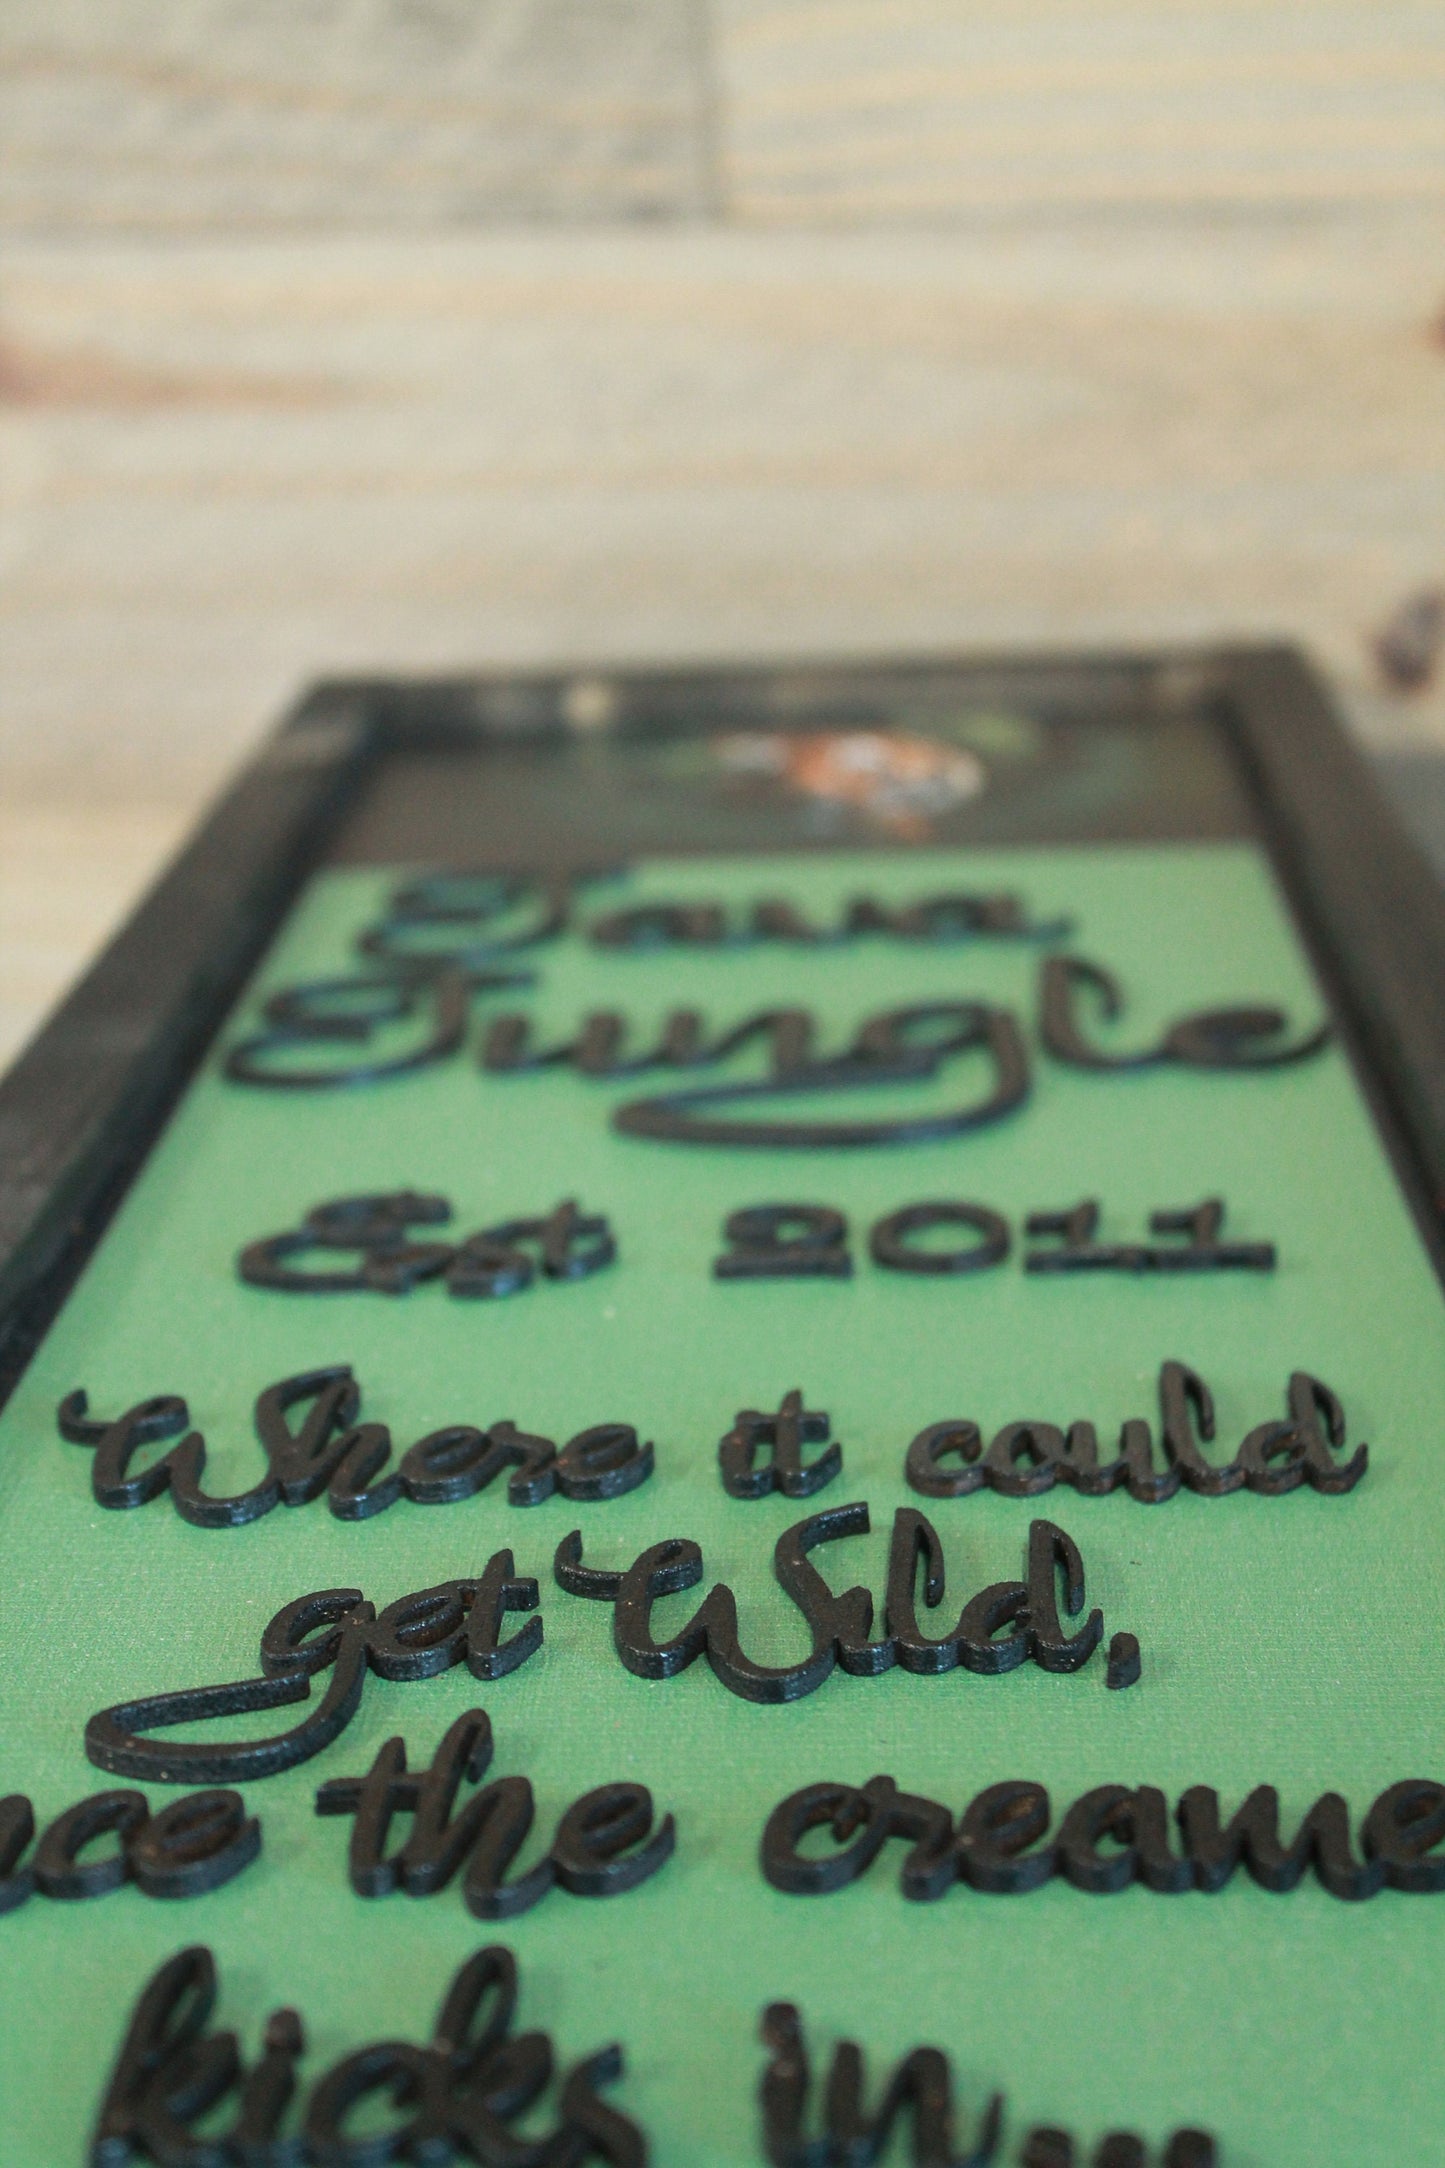 Java
Jungle
Est 2011
Where it could
get Wild,
the
kicks in...